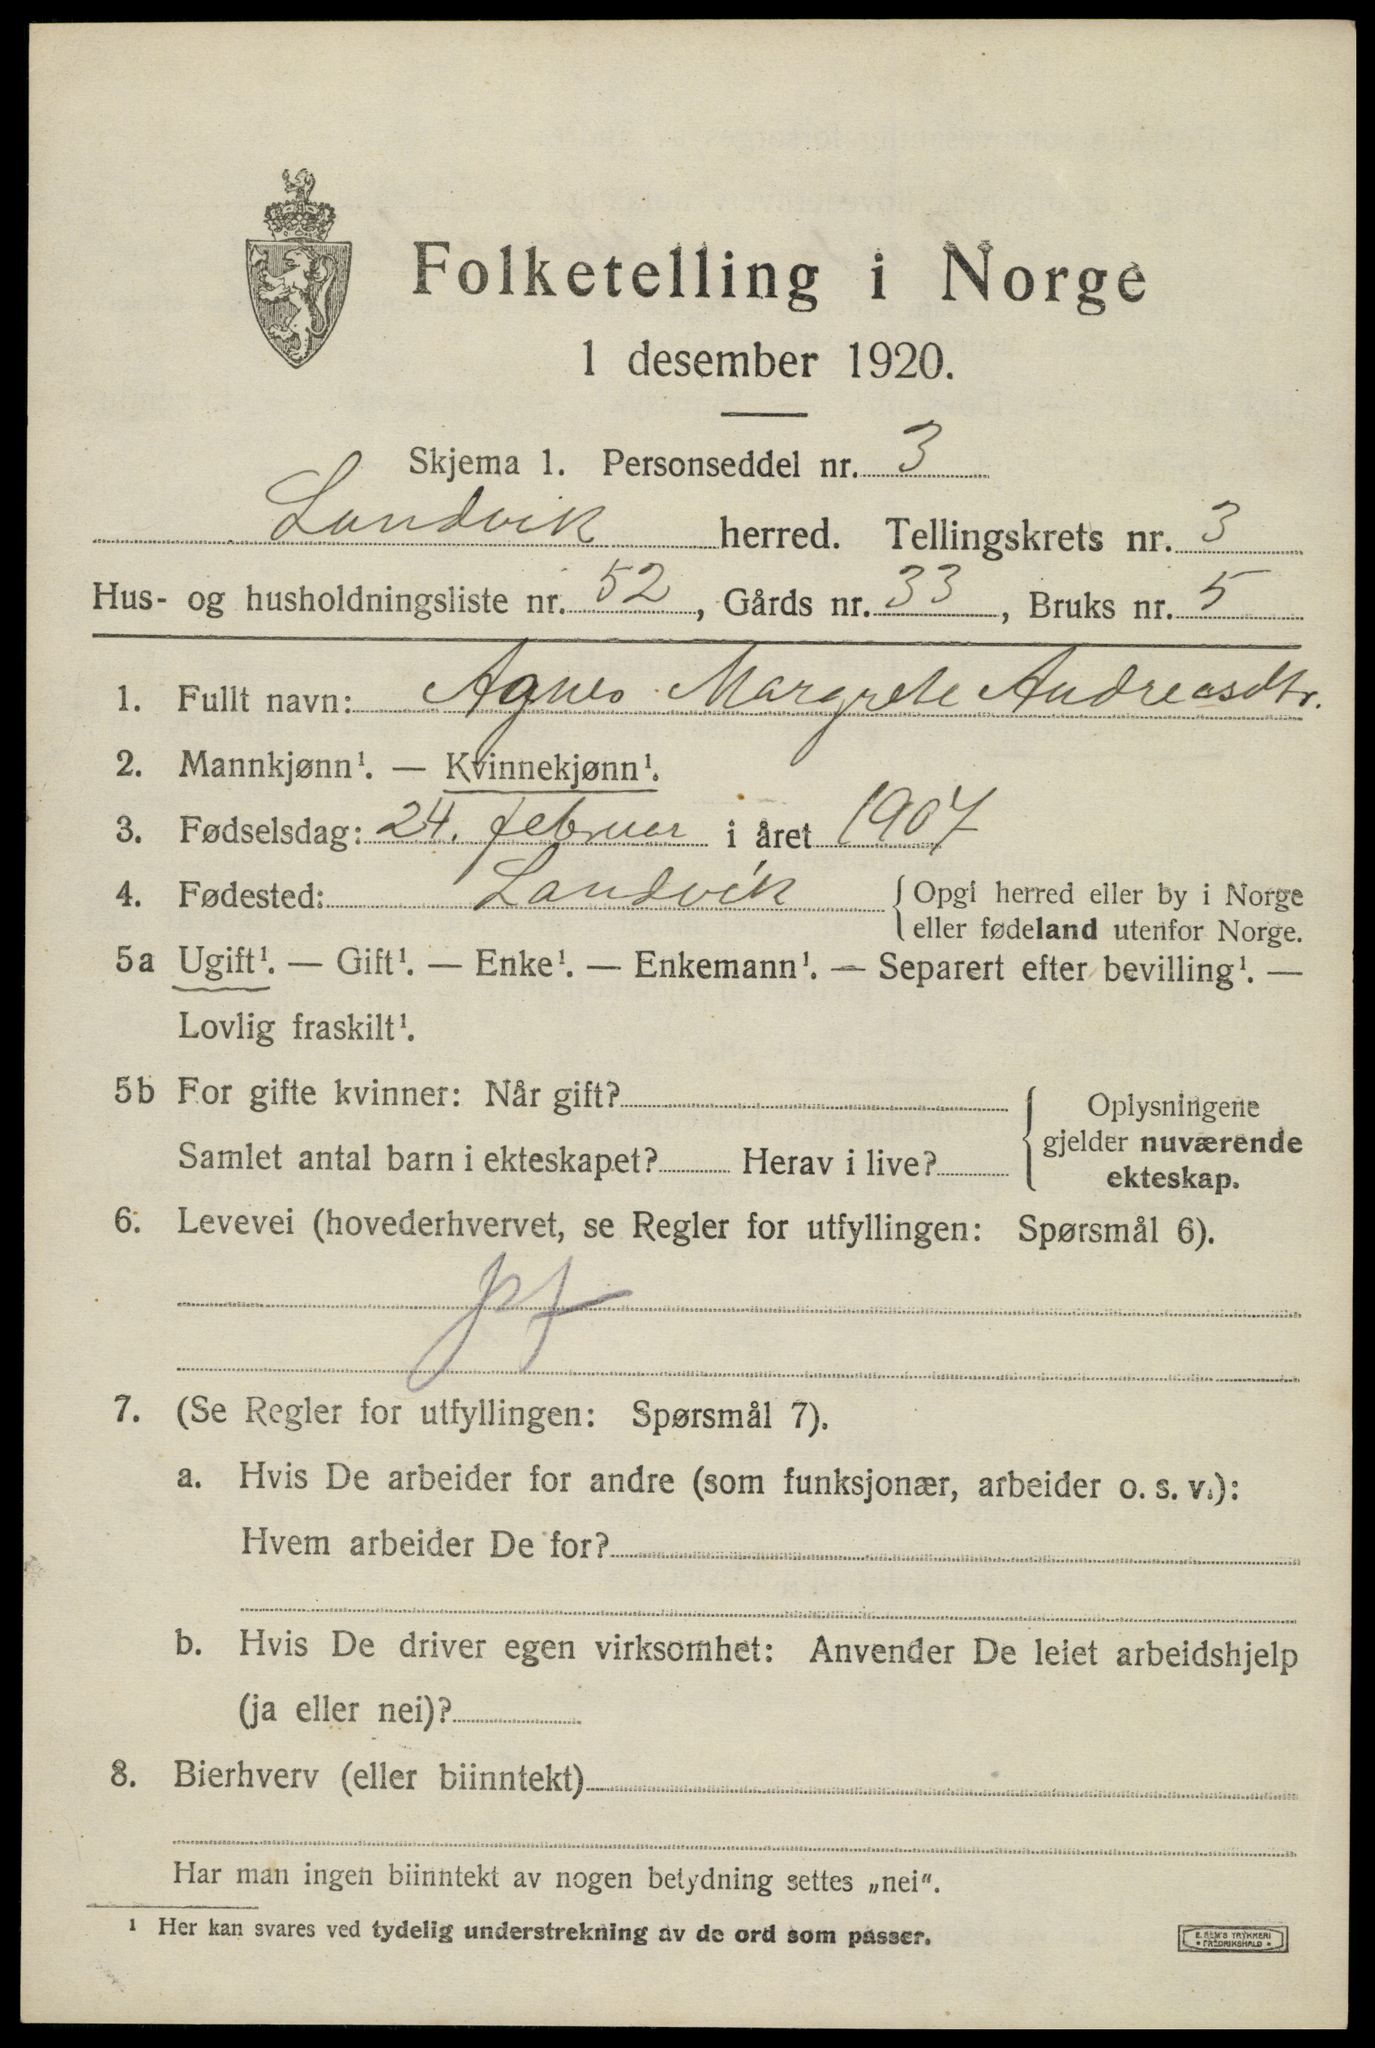 Folketelling i Norge
1 desember 1920.
Skjema 1. Personseddel nr. 3
Landvik herred. Tellingskrets nr. 3
Hus- og husholdningsliste nr. 52, Gårds nr. 33, Bruks nr. 5
1. Fullt navn: Agnes Margrete Andreasdtr.
2. Mannkjønn¹. — Kvinnekjønn¹.
3. Fødselsdag: 24. februar i året 1907
4. Fødested: Landvik { Opgi herred eller by i Norge
eller fødeland utenfor Norge.
5a Ugift¹. — Gift¹. — Enke¹. — Enkemann¹. — Separert efter bevilling¹. —
Lovlig fraskilt¹.
5b For gifte kvinner: Når gift?
Samlet antal barn i ekteskapet? Herav i live?
{ Oplysningene
gjelder nuværende
ekteskap.
6. Levevei (hovederhvervet, se Regler for utfyllingen: Spørsmål 6).
7. (Se Regler for utfyllingen: Spørsmål 7).
a. Hvis De arbeider for andre (som funksjonær, arbeider o. s. v.):
Hvem arbeider De for?
b. Hvis De driver egen virksomhet: Anvender De leiet arbeidshjelp
(ja eller nei)?
8. Bierhverv (eller biinntekt)
Har man ingen biinntekt av nogen betydning settes „nei".
¹ Her kan svares ved tydelig understrekning av de ord som passer.
E. SEM'S TRYKKERI
• FREDRIKSHALD •